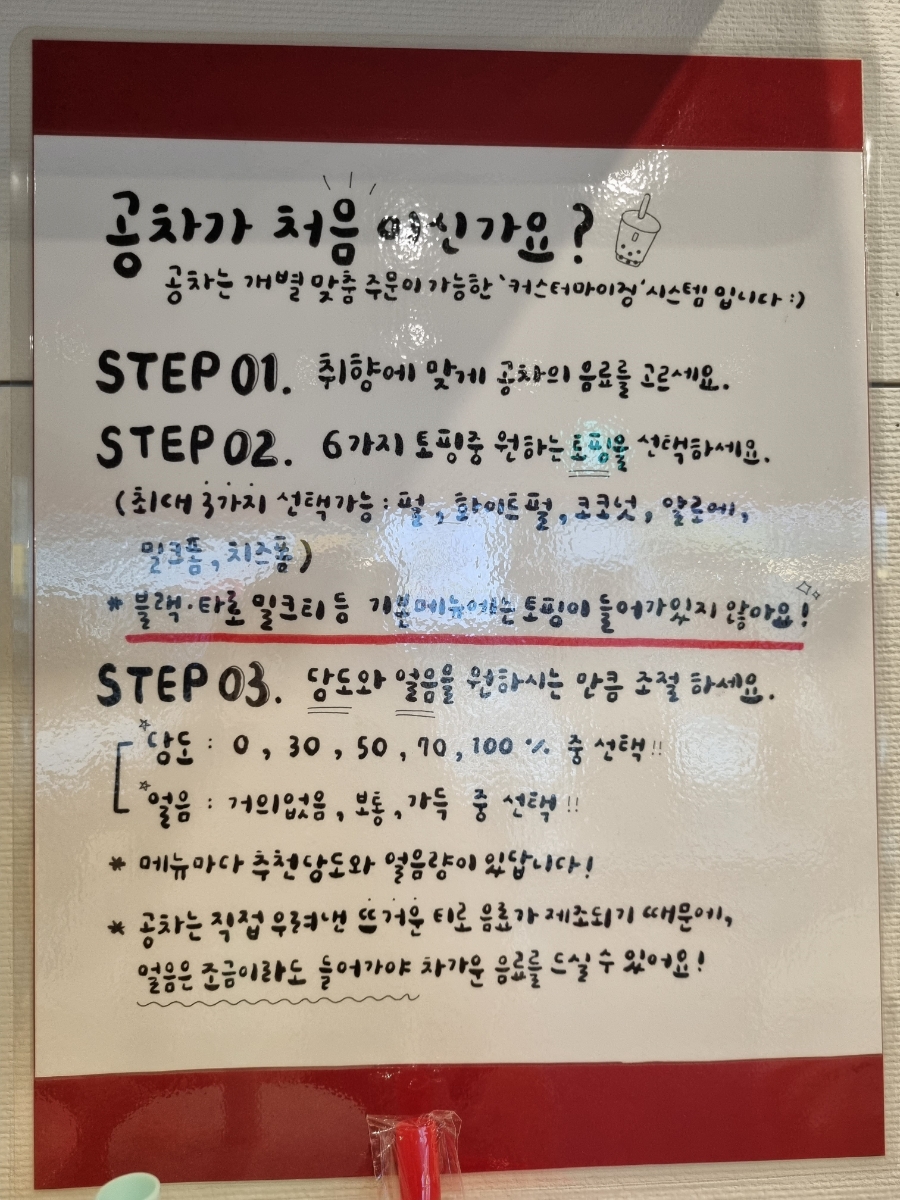 공차가 처음 이신가요?
공차는 개별 맞춤 주문이 가능한 '커스터마이징' 시스템 입니다 :)
STEP 01. 취향에 맞게 공차의 음료를 고르세요.
STEP 02. 6가지 토핑중 원하는 토핑을 선택하세요.
(최대 3가지 선택가능 : 펄, 화이트펄, 코코넛, 알로에,
밀크폼, 치즈폼)
* 블랙·타로 밀크티 등 기본메뉴에는 토핑이 들어가있지 않아요!
STEP 03. 당도와 얼음을 원하시는 만큼 조절 하세요.
☆당도 : 0, 30, 50, 70, 100 % 중 선택!!
☆얼음 : 거의없음, 보통, 가득 중 선택!!
* 메뉴마다 추천당도와 얼음량이 있답니다!
* 공차는 직접 우려낸 뜨거운 티로 음료가 제조되기 때문에,
얼음은 조금이라도 들어가야 차가운 음료를 드실 수 있어요!